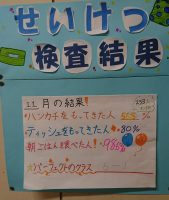 せいけつ
検査結果
11月の結果!
・ハンカチをもってきた人
%
・ティッシュをもってきた人・80%
・朝ごはん食べた人!・98%
☆パーフェクトのクラス